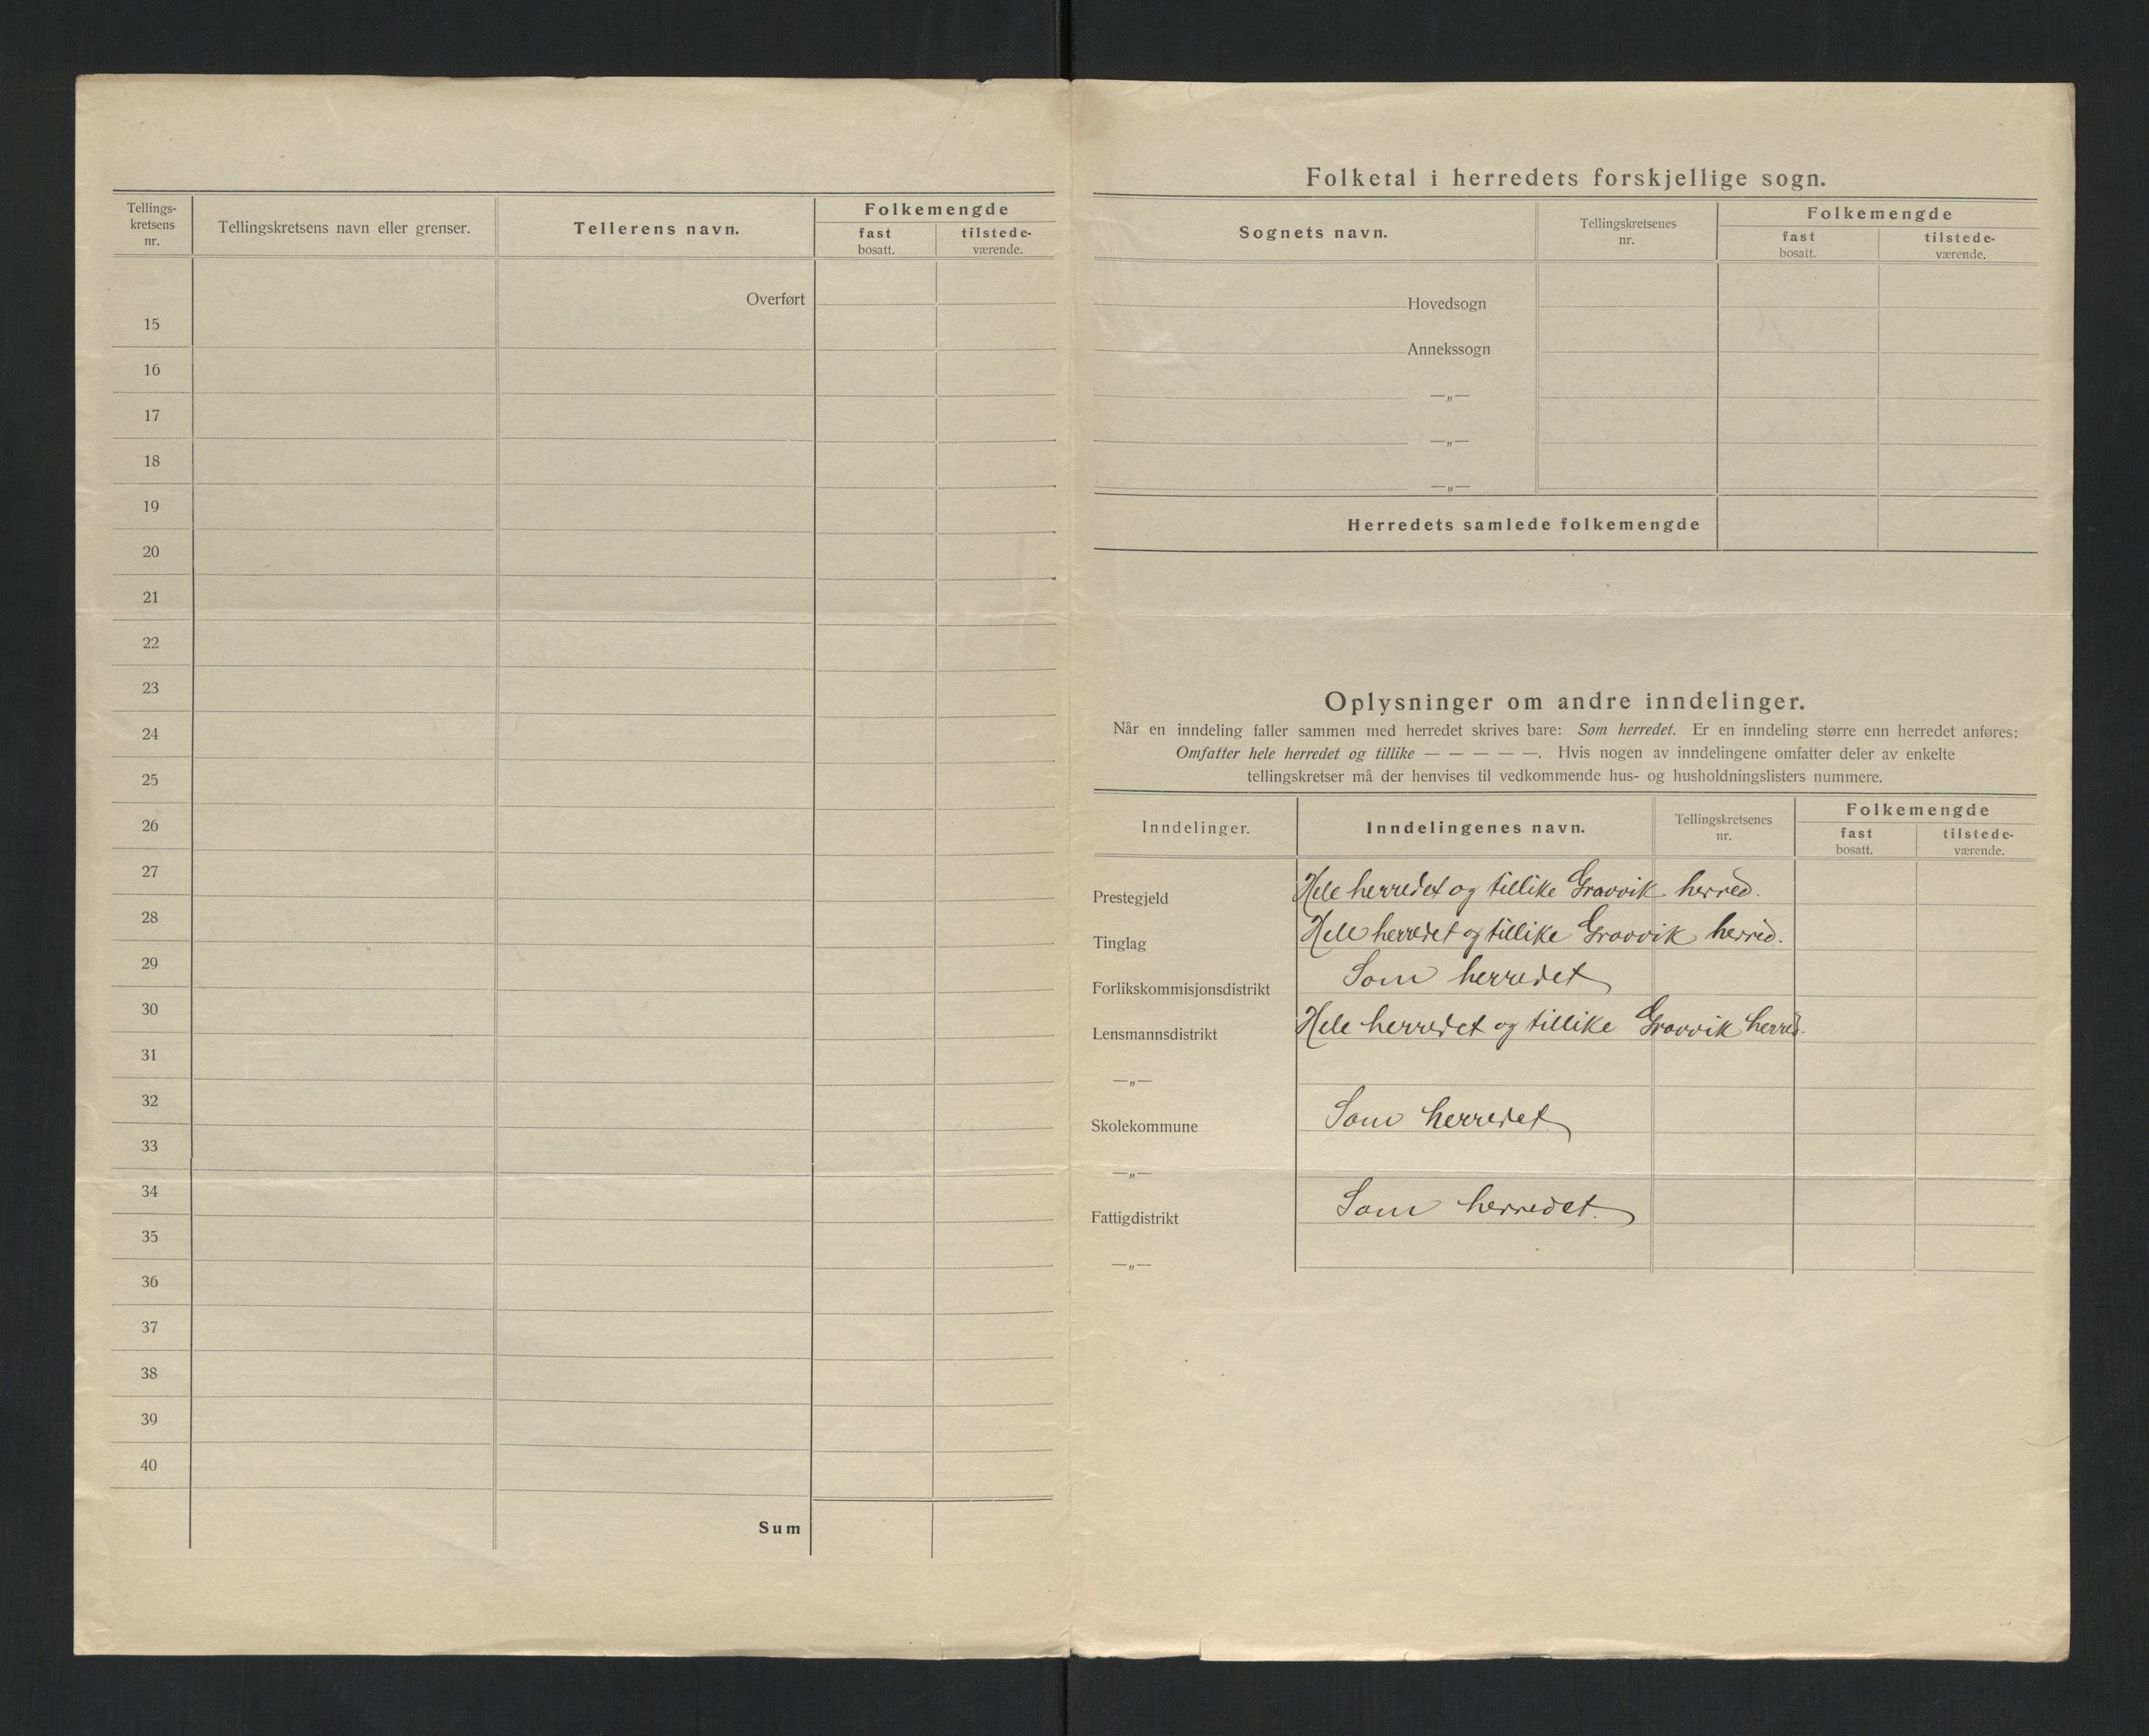 Tellings-
kretsens
nr.
Tellingskretsens navn eller grenser.
Tellerens navn.
Folkemengde
fast
bosatt.
tilstede-
værende.
Overført
15
16
17
18
19
20
21
22
23
24
25
26
27
28
29
30
31
32
33
34
35
36
37
38
39
40
Sum
Folketal i herredets forskjellige sogn.
Sognets navn.
Tellingskretsenes
nr.
Folkemengde
fast
bosatt.
tilstede-
værende.
Hovedsogn
Annekssogn
—„—
—„—
—„—
Herredets samlede folkemengde
Oplysninger om andre inndelinger.
Når en inndeling faller sammen med herredet skrives bare: Som herredet. Er en inndeling større enn herredet anføres:
Omfatter hele herredet og tillike — — — — —. Hvis nogen av inndelingene omfatter deler av enkelte
tellingskretser må der henvises til vedkommende hus- og husholdningslisters nummere.
Inndelinger.
Inndelingenes navn.
Tellingskretsenes
nr.
Folkemengde
fast
bosatt.
tilstede-
værende.
Prestegjeld Hele herredet og tillike Gravvik herred.
Tinglag Hele herredet og tillike Gravvik herred.
Forlikskommisjonsdistrikt Som herredet
Lensmannsdistrikt Hele herredet og tillike Gravvik herred.
—„—
Skolekommune Som herredet
—„—
Fattigdistrikt Som herredet.
—„—